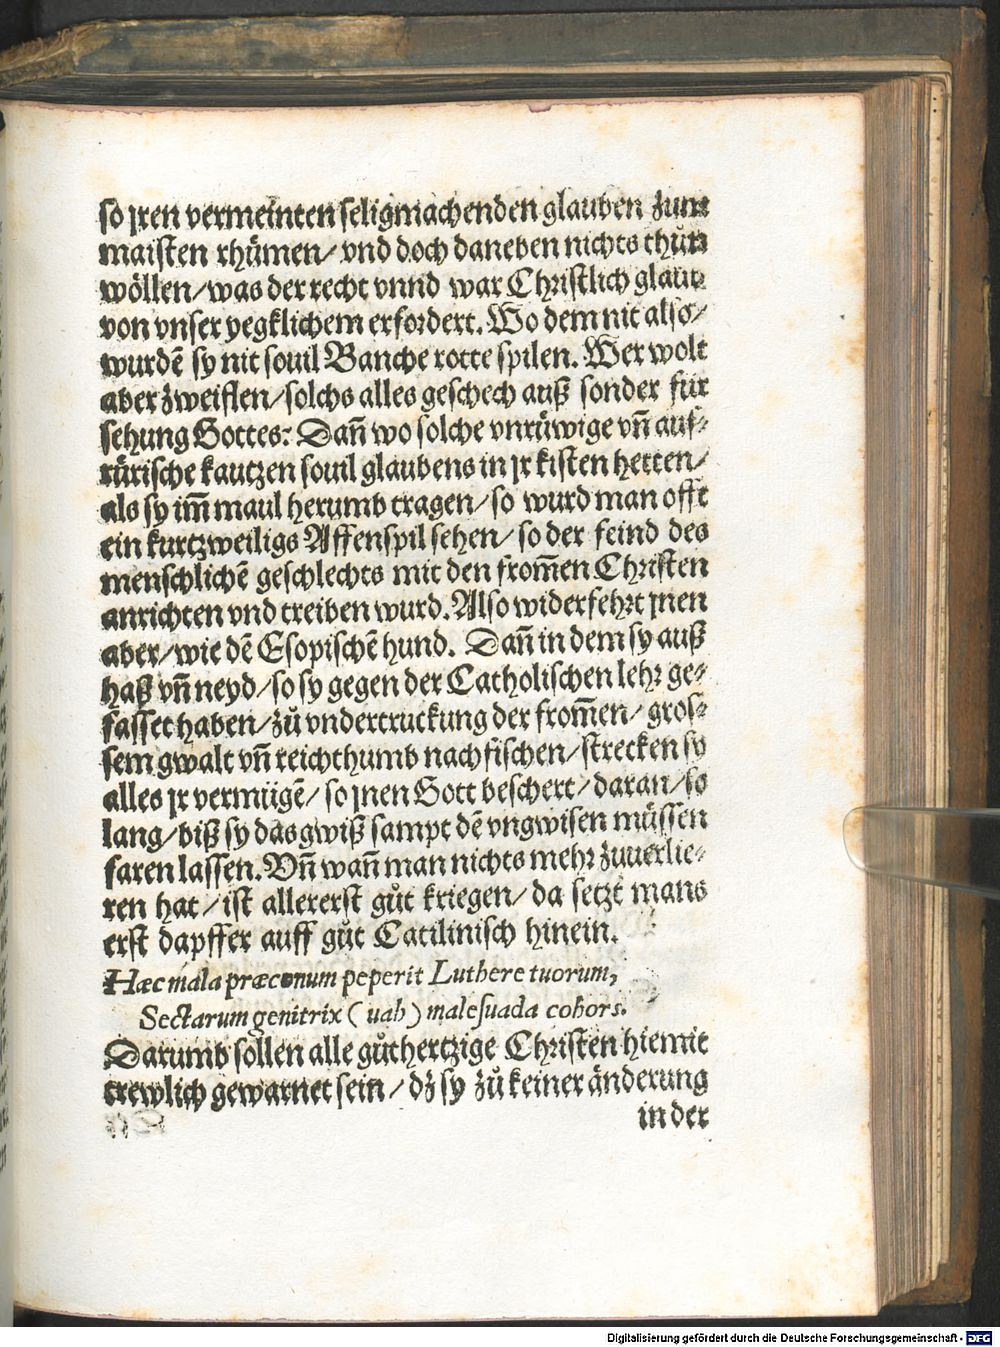 so jren vermeinten seligmachenden glauben zum
maisten rhümen/ vnd doch daneben nichts thůn
wöllen/ was der recht vnnd war Christlich glaub
von vnser yegklichem erfordert. Wo dem nit also/
wurdẽ sy nit souil Banche rotte spilen. Wer wolt
aber zweiflen/ solchs alles geschech auß sonder für
sehung Gottes: Dañ wo solche vnrüwige vñ auf⸗
rürische kautzen souil glaubens in jr kisten hetten/
als sy im̃ maul herumb tragen/ so wurd man offt
ein kurtzweiligs Affenspil sehen/ so der feind des
menschlichẽ geschlechts mit den from̃en Christen
anrichten vnd treiben wurd. Also widerfehrt jnen
aber/ wie dẽ Esopischẽ hund. Dañ in dem sy auß
haß vñ neyd/ so sy gegen der Catholischen lehr ge⸗
fasset haben/ zů vndertruckung der from̃en/ gros⸗
sem gwalt vñ reichthumb nachfischen/ strecken sy
alles jr vermügẽ/ so jnen Gott beschert/ daran/ so
lang/ biß sy das gwiß sampt dẽ vngwisen müssen
faren lassen. Vñ wañ man nichts mehr zuuerlie⸗
ren hat/ ist allererst gůt kriegen/ da setzt mans
erst dapffer auff gůt Catilinisch hinein.
Hæc mala præconum peperit Luthere tuorum,
Sectarum genitrix ( uah ) malesuada cohors.
Darumb sollen alle gůthertzige Christen hiemit
trewlich gewarnet sein/ dz sy zů keiner änderung
in der
Digitalisierung gefördert durch die Deutsche Forschungsgemeinschaft - DFG